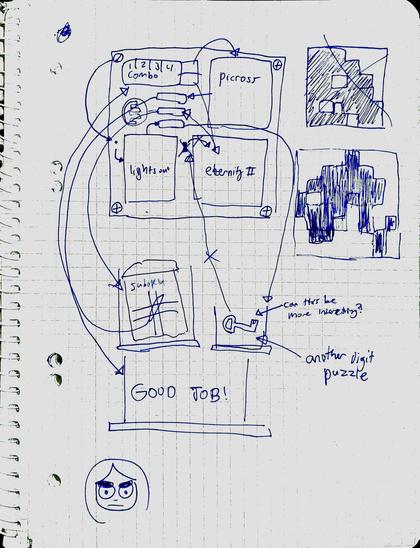 1 2 3 4
Combo
picross
lights out
eternity II
sudoku
can this be
more interesting?
another digit
puzzle
GOOD JOB!